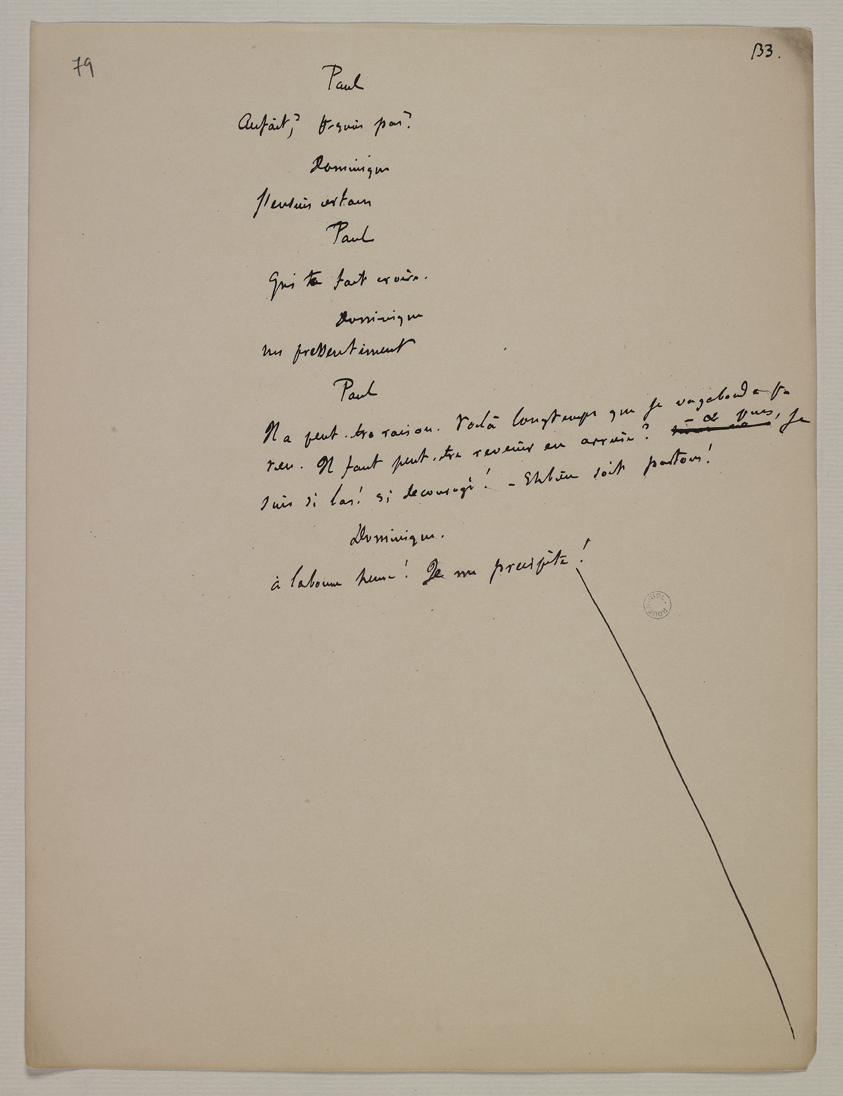 79
B3.
Paul
Aufait? Pourquoi pas?
Dominique
j'en suis certain
Paul
Qui te fait croire.
Dominique
un pressentiment
Paul
Il a peut-être raison. Voilà longtemps que je vagabonde
rien. Il faut peut-être revenir en arrière? Je
suis si las! si decouragé! – Eh bien soit partons!
Dominique.
à la bonne heure! Je me precipite!